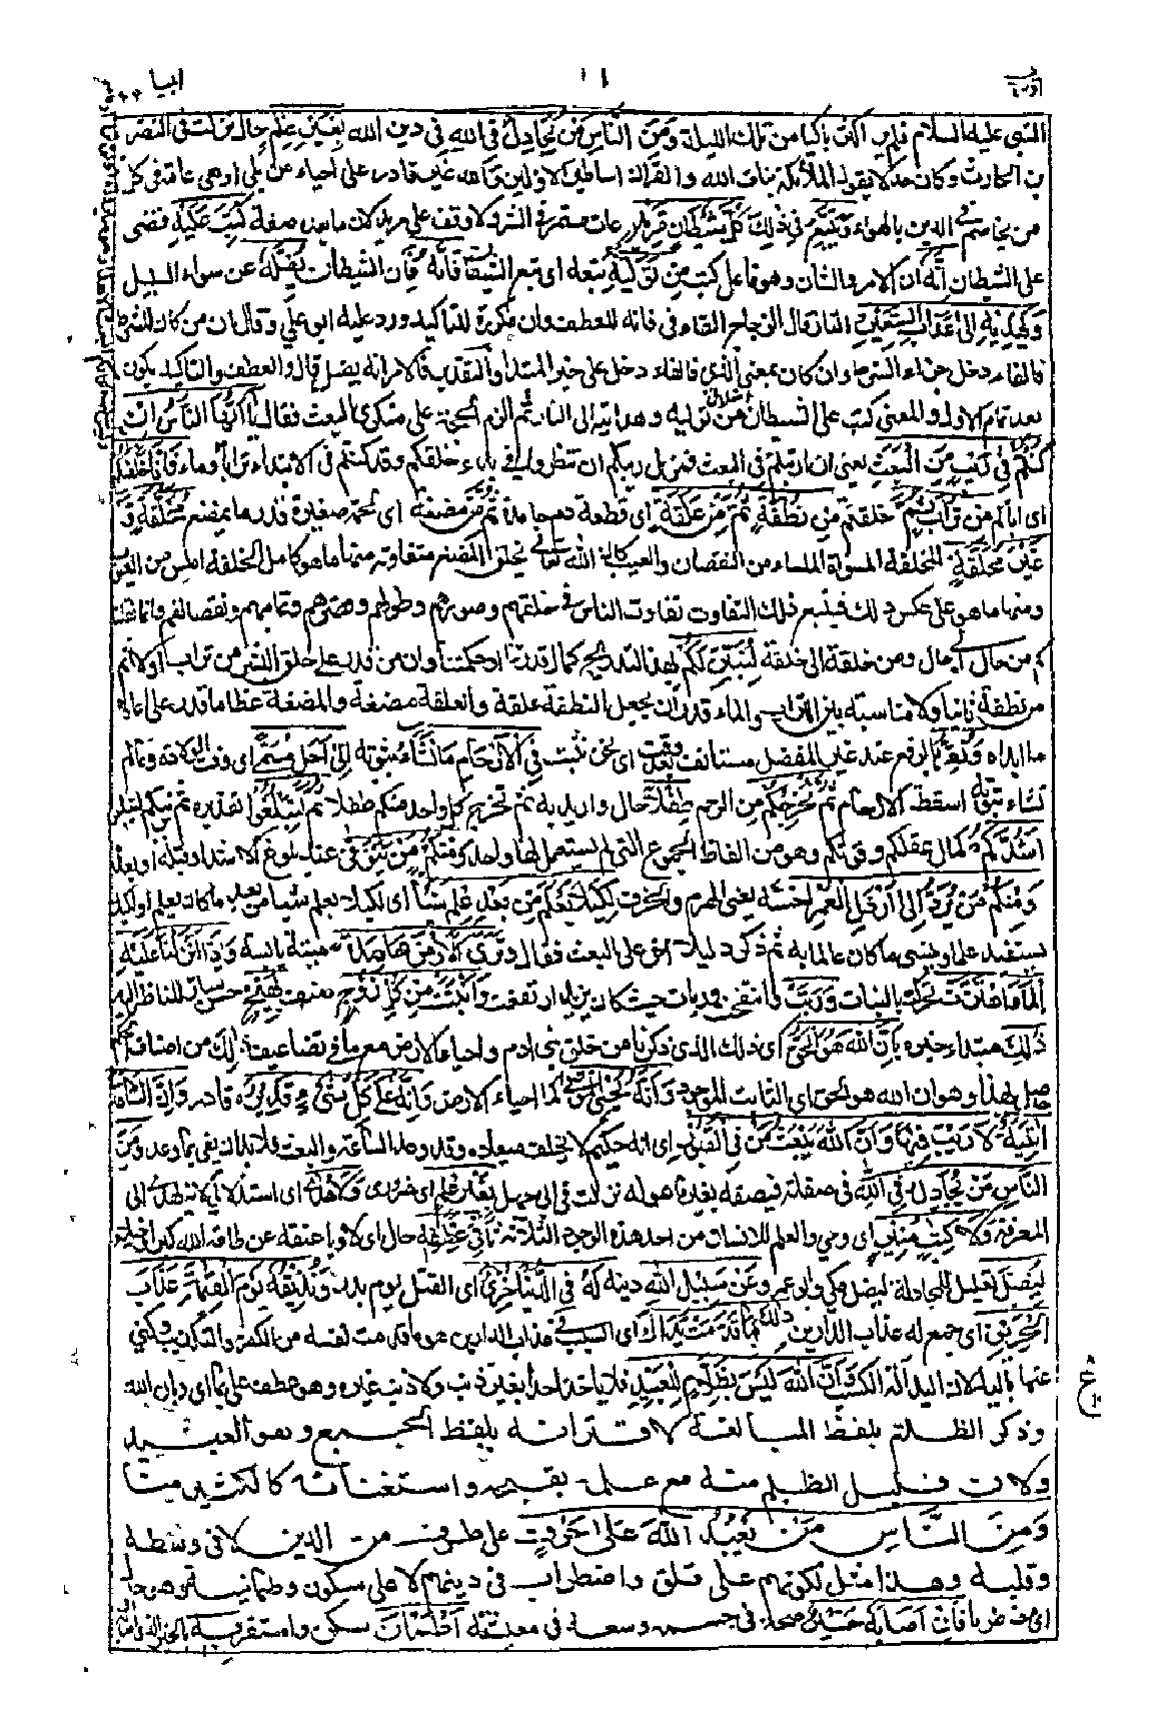 النبي عليه السلام فلم ير اكثر باكيا من تلك الليلة وَمِنَ النَّاسِ مَنْ يُّجَادِلُ فِي اللهِ في دين الله بِغَيْرِ عِلْمٍ حال نزلت في النضر
بن الحارث وكان جدلا يقول الملائكة بنات الله والقران اساطير الاولين والله غير قادر على احياء من بلي اوهي عامة في كل
من يخاصم في الدين بالهواء وَيَتَّبِعُ في ذلك كُلَّ شَيْطَانٍ مَّرِيْدٍ عات مستمر في الشر ولا وقف على مريد لان ما بعده صفة كُتِبَ عَلَيْهِ قضى
على الشيطان اَنَّهُ ان الامر والشان وهو فاعل كتب مَنْ تَوَلَّاهُ تبعه اى تبع الشيطان فَاَنَّهُ فان الشيطان يُضِلُّهُ عن سواء السبيل
وَيَهْدِيْهِ اِلٰى عَذَابِ السَّعِيْرِ النار قال الزجاج الفاء في فانه للعطف وان مكررة للتاكيد ورد عليه ابو علي وقال ان من كان للشرط
فالفاء دخل جزاء الشرط وان كان بمعنى الذى فالفاء دخل على خبر المبتدأ والتقدير فالامر انه يضل قال والعطف والتاكيد يكون
بعد تمام الاول والمعنى كتب على الشيطان اضلال من تولاه وهدايته الى النار ثم الزم الحجة على منكرى البعث فقال يٰاَيُّهَا النَّاسُ اِنْ
كُنْتُمْ فِيْ رَيْبٍ مِّنَ الْبَعْثِ يعنى ان ارتبتم في البعث فمزيل ريبكم ان تنظروا في بدء خلقكم وقد كنتم في الابتداء ترابا وماء فَاِنَّا خَلَقْنٰكُمْ
اى اباكم مِنْ تُرَابٍ ثُمَّ خلقتم مِنْ نُّطْفَةٍ ثُمَّ مِنْ عَلَقَةٍ اى قطعة دم جامدة ثُمَّ مِنْ مُّضْغَةٍ اى لحمة صغيرة قدر ما يمضغ مُّخَلَّقَةٍ وَّ
غَيْرِ مُخَلَّقَةٍ المخلقة المسواة الملساء من النقصان والعيب كان الله تعالى يخلق المضغ متفاوتة منها ما هو كامل الخلقة املس من العيوب
ومنها ما هو على عكس ذلك فيتبع ذلك التفاوت تفاوت الناس في خلقتهم وصورهم وطولهم وقصرهم وتمامهم ونقصانهم وانما نقلنا
كم من حال الى حال ومن خلقة الى خلقة لِنُبَيِّنَ لَكُمْ بهذا التدريج كمال قدرتنا وحكمتنا وان من قدر على خلق البشر من تراب اولا ثم
من نطفة ثانيا ولا مناسبة بين التراب والماء وقدر ان يجعل النطفة علقة والعلقة مضغة والمضغة عظاما قدر على اعادة
ما ابداه وَنُقِرُّ بالرفع عند غير المفضل مستانف بعد وقف اى نحن نثبت فِي الْاَرْحَامِ مَا نَشَاءُ ثبوته اِلٰى اَجَلٍ مُّسَمًّى اى وقت الولادة وما لم
نشاء ثبوته اسقطته الارحام ثُمَّ نُخْرِجُكُمْ من الرحم طِفْلًا حال واريد به ثم نخرج كل واحد منكم طفلا ثُمَّ لِتَبْلُغُوْا تقديره ثم نربيكم لتبلغوا
اَشُدَّكُمْ كمال عقلكم وقوتكم وهو من الفاظ الجموع التي لم يستعمل لها واحد وَمِنْكُمْ مَّنْ يُّتَوَفّٰى عند بلوغ الاشد او قبله او بعده
وَمِنْكُمْ مَّنْ يُّرَدُّ اِلٰى اَرْذَلِ الْعُمُرِ اخسه يعنى الهرم والخرف لِكَيْلَا يَعْلَمَ مِنْ بَعْدِ عِلْمٍ شَيْئًا اى لكيلا يعلم شيئا من بعد ما كان يعلمه او لكيلا
يستفيد علما وينسى ما كان عالما به ثم ذكر دليلا اخر على البعث فقال وَتَرَى الْاَرْضَ هَامِدَةً ميتة يابسة فَاِذَا اَنْزَلْنَا عَلَيْهَا
الْمَاءَ اهْتَزَّتْ تحركت بالنبات وَرَبَتْ وانتفخت وربأت حيث كان يزيد ارتفعت وَاَنْبَتَتْ مِنْ كُلِّ زَوْجٍ صنف بَهِيْجٍ حسن سار للناظرين اليه
ذٰلِكَ مبتدا خبره بِاَنَّ اللهَ هُوَ الْحَقُّ اى ذلك الذى ذكرنا من خلق بنى ادم واحياء الارض مع ما في تضاعيف ذلك من اصناف الحكم
حاصل بهذا وهو ان الله هو الحق اى الثابت الموجود وَاَنَّهُ يُحْيِ الْمَوْتٰى كما احياء الارض وَاَنَّهُ عَلٰى كُلِّ شَيْءٍ قَدِيْرٌ قادر وَاَنَّ السَّاعَةَ
اٰتِيَةٌ لَّا رَيْبَ فِيْهَا وَاَنَّ اللهَ يَبْعَثُ مَنْ فِي الْقُبُوْرِ اى انه حكيم لا يخلف ميعاده وقد وعد الساعة والبعث فلا بد ان يفى بما وعد وَمِنَ
النَّاسِ مَنْ يُّجَادِلُ فِي اللهِ في صفاته فيصفه بغير ما هو له نزلت في ابى جهل بِغَيْرِ عِلْمٍ اى ضرورى وَّلَا هُدًى اى استدلال لانه يهدى الى
المعرفة وَّلَا كِتٰبٍ مُّنِيْرٍ اى وحي والعلم للانسان من احد هذه الوجوه الثلاثة ثَانِيَ عِطْفِهِ حال اى لاويا عنقه عن طاعة الله كبرا وخيلاء
لِيُضِلَّ تعليل للمجادلة ليضل مكي وابو عمرو عَنْ سَبِيْلِ اللهِ دينه لَهُ فِي الدُّنْيَا خِزْيٌ اى القتل يوم بدر وَّنُذِيْقُهُ يَوْمَ الْقِيٰمَةِ عَذَابَ
الْحَرِيْقِ اى جمع له عذاب الدارين ذٰلِكَ بِمَا قَدَّمَتْ يَدَاكَ اى السبب في عذاب الدارين هو ما قدمت نفسه من الكفر والتكذيب وكنى
عنها باليد لان اليد الة الكسب وَاَنَّ اللهَ لَيْسَ بِظَلَّامٍ لِّلْعَبِيْدِ فلا ياخذ احدا بغير ذنب ولا ذنب غيره وهو عطف على بما اى وبان الله
وذكر الظلام بلفظ المبالغة لاقترانه بلفظ الجمع وهو العبيد
ولان قليل الظلم منه مع علمه بقبحه واستغنائه كالكثير منا
وَمِنَ النَّاسِ مَنْ يَّعْبُدُ اللهَ عَلٰى حَرْفٍ على طرف من الدين لا في وسطه
وقلبه وهذا مثل لكونهم على قلق واضطراب في دينهم لا على سكون وطمانينة وهو حال
اى مضطربا فَاِنْ اَصَابَهُ خَيْرٌ صحة في جسمه وسعة في معيشته اطْمَاَنَّ سكن واستقر بِهِ بالخير الذى اصابه